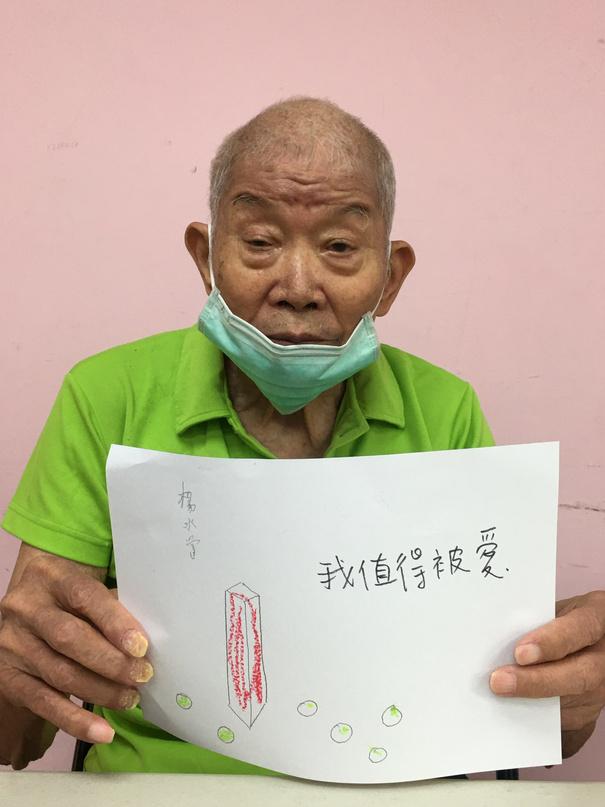 楊水管
我值得被愛.